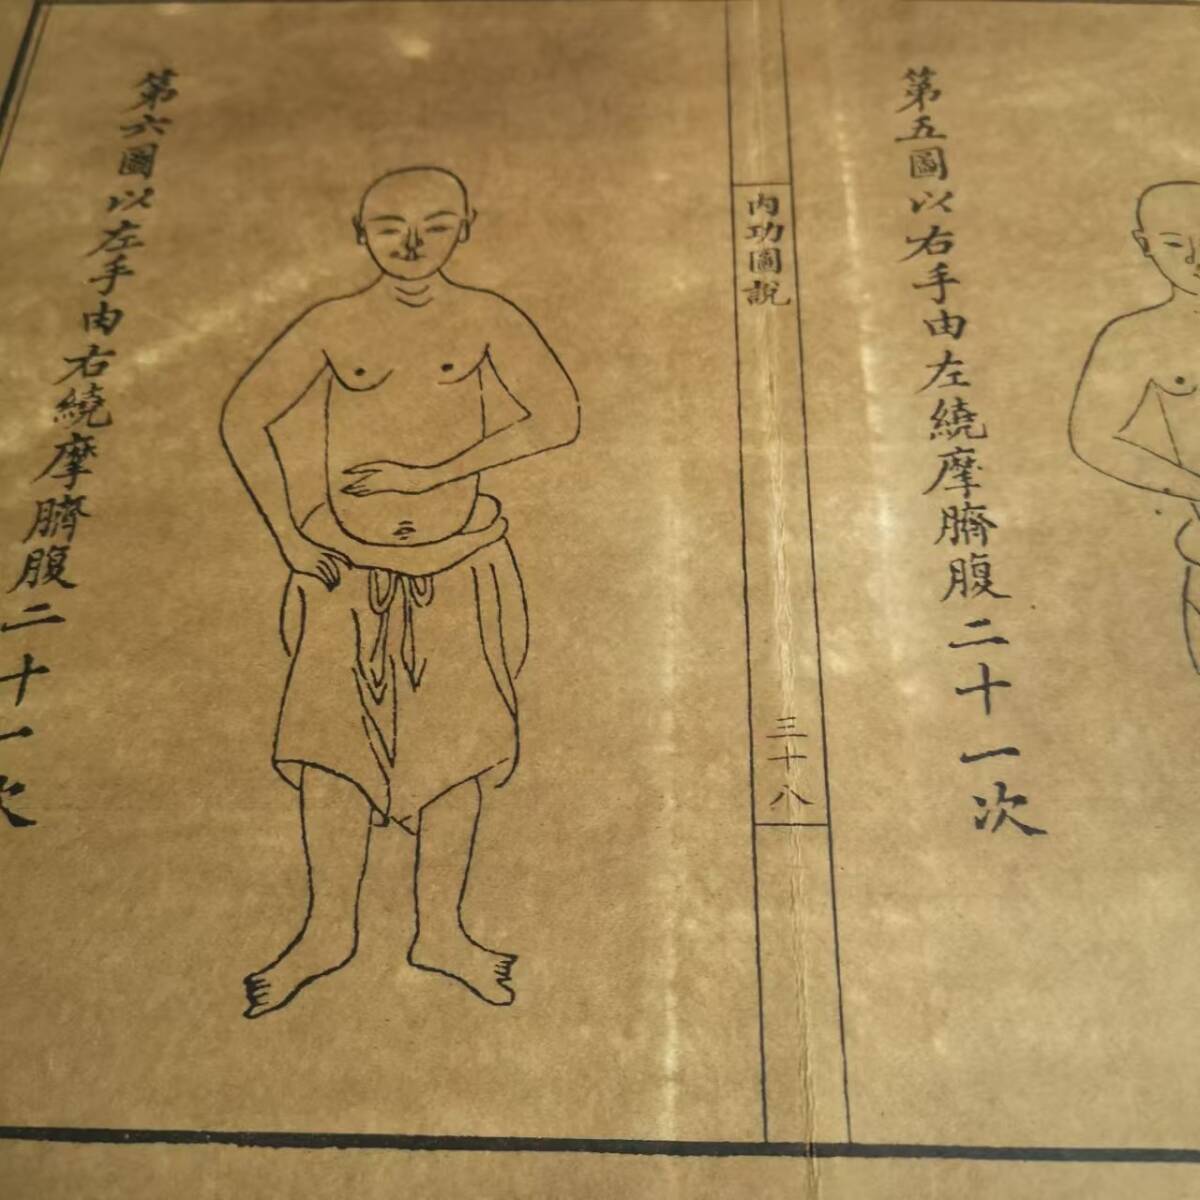 第五圖以右手由左繞摩臍腹二十一次
內功圖說
三十八
第六圖以左手由右繞摩臍腹二十一次